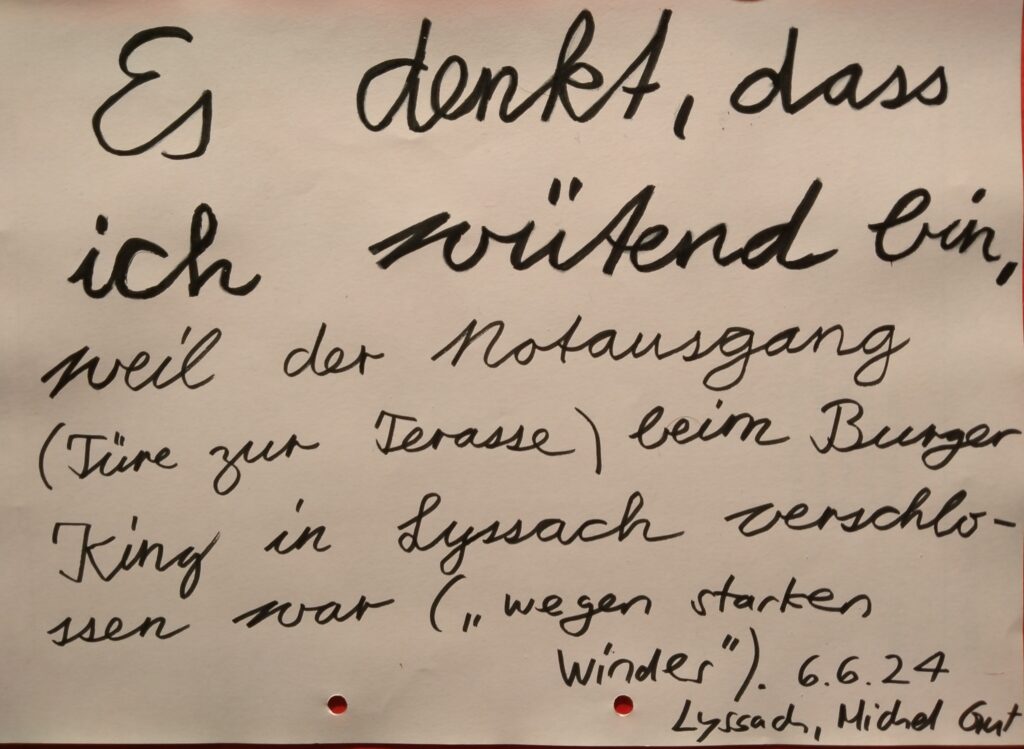 Es denkt, dass
ich wütend bin,
weil der Notausgang
(Türe zur Terasse) beim Burger
King in Lyssach verschlo-
ssen war („wegen starken
Winder"). 6.6.24
Lyssach, Michel Gut